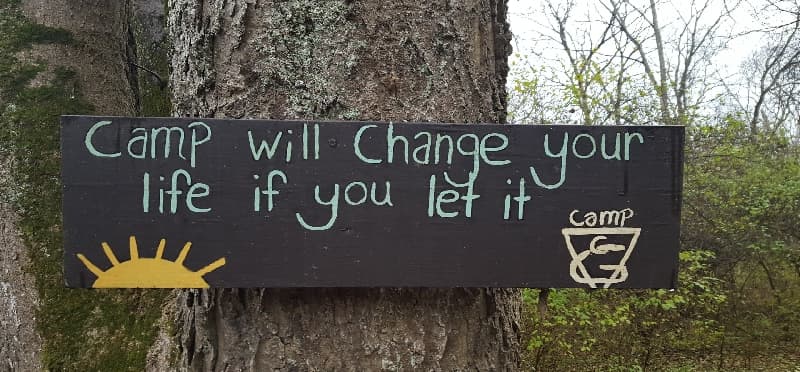 Camp will Change your
life if you let it
camp